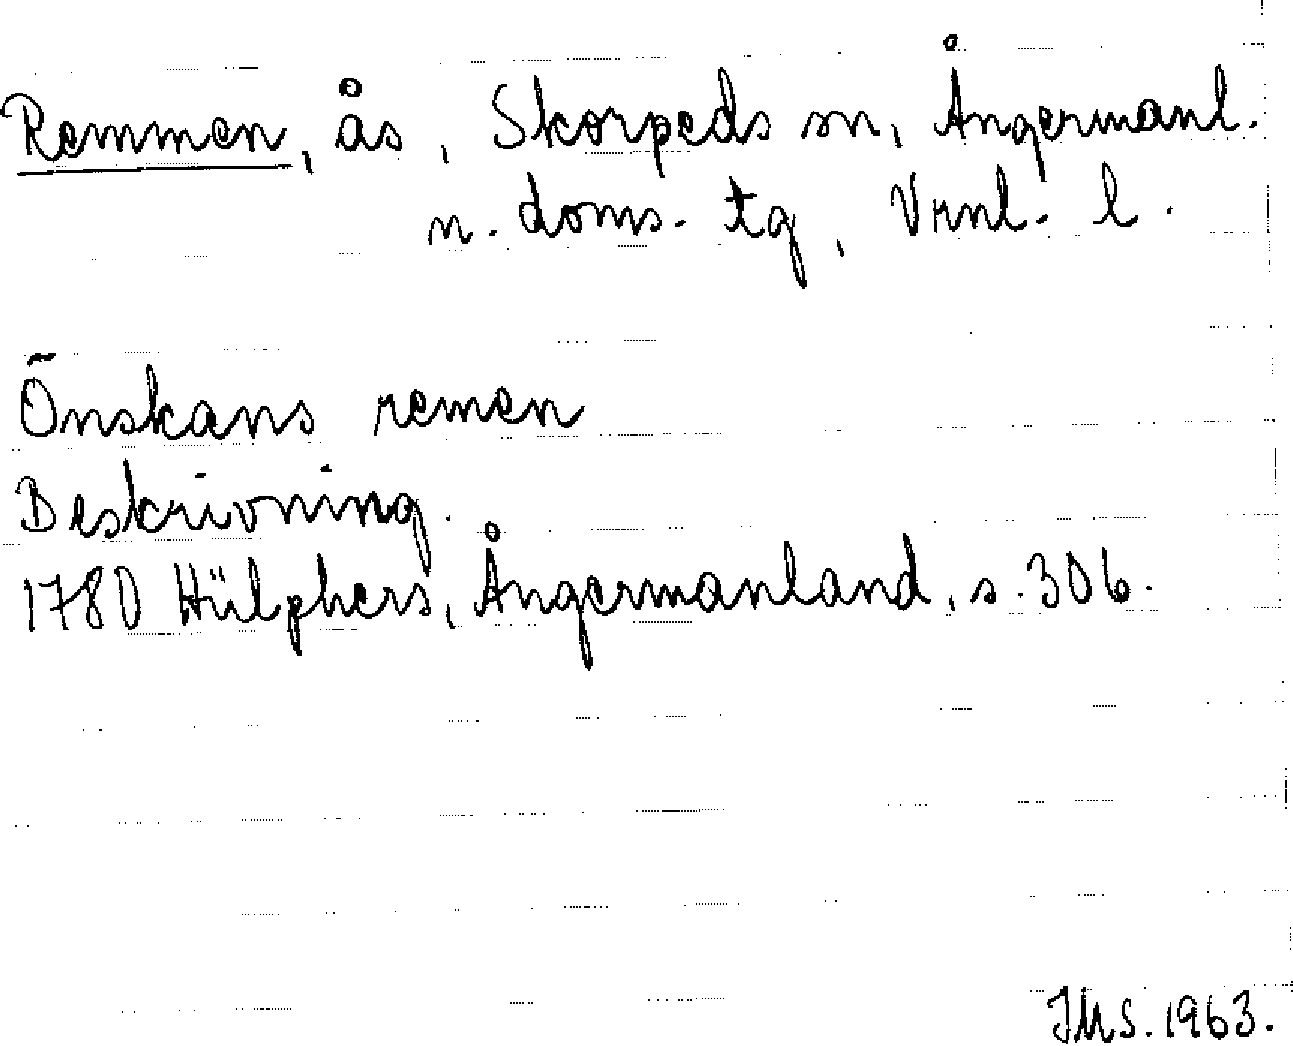 Remmen, ås, Skorpeds sn, Ångermanl.
n. doms. tg, Vrnl. l.
Önskans remen
Beskrivning.
1780 Hülphers, Ångermanland, s. 306.
IMS. 1963.